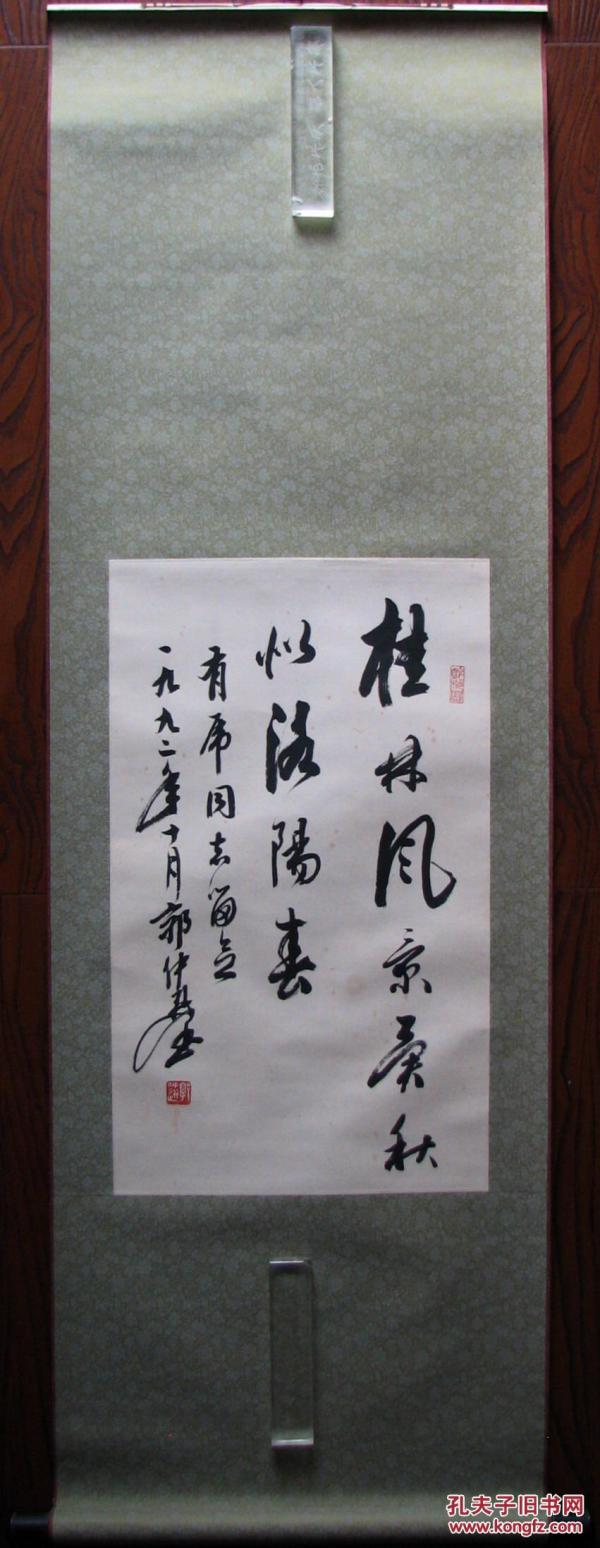 桂林风景異秋
似洛陽春
有席同志留念
一九九二年十月郭仲選書
孔夫子旧书网
www.kongfz.com